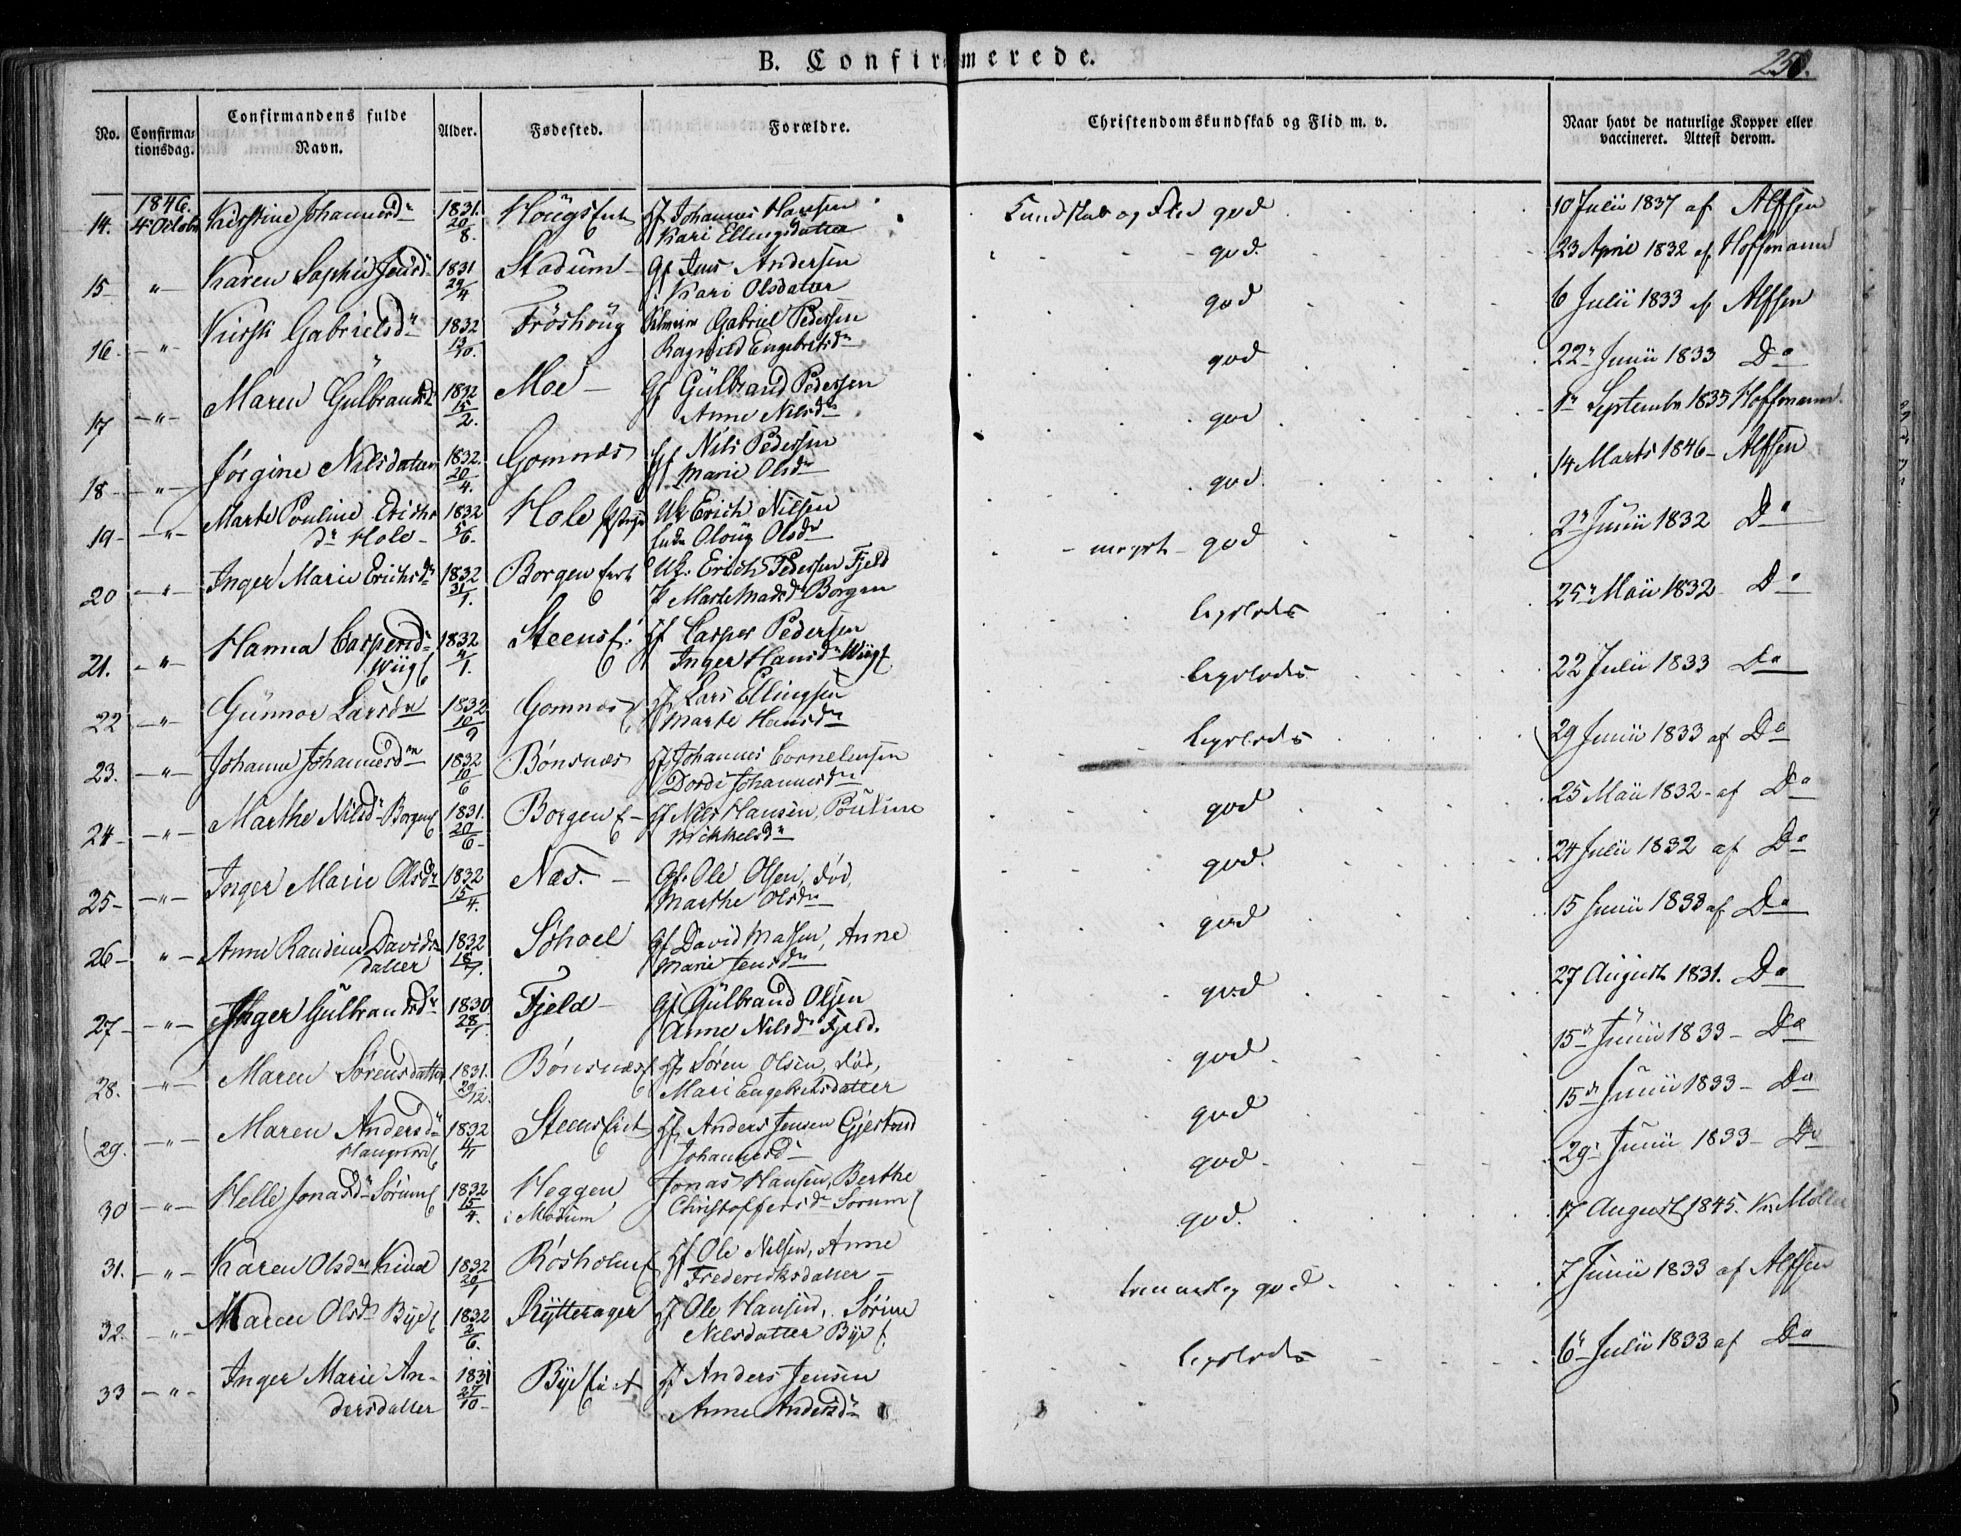 B. Confirmerede.
250.
No. Confirmationsdag. Confirmandens fulde Navn. Alder. Fødested. Forældre. Christendomskundskab og Flid m. v. Naar havt de naturlige Kopper eller vaccineret. Attest derom.
1846.
14. 4 Octobr Kirstine Johannesdr 1831. 20/8. Hougs Johannes Hansen Kari Ellingsdatter Kundskab og Flid god 10 Julii 1837 af Alfsen
15 " Karen Sophie Jensdr 1831 29/4 Stadum Gf Jens Andersen Kari Olsdatter god. 23 April 1832 af Hoffmann
16. " Kirsti Gabrielsdr 1832 13/10. Fröshöug Gabriel Pedersen Ragnild Engebretsdr god 6 Julii 1833 af Alfsen
17 " Maren Gülbrandsdr 1832 15/2. Moe Gf Gülbrand Pedersen Anne Nilsdr god 22 Junii 1833 Do
18 " Jørgine Nilsdatter 1832. 20/4. Gomnæs Nils Pedersen Marie Olsdr god 1 Septembr 1835 Hoffmann.
19 " Marte Pouline Erichs dr Hole 1832 5/6. Hole Uk Erich Nilsen Oloug Olsdr god 14 Marts 1846 Alfsen
20 " Inger Marie Erichsdr 1832 31/1. Borgen Uk. Erich Pedersen Fjeld P Marte Madsdr Borgen meget god 2 Junii 1832 Do
21. " Hanna Caspersdr Wiig 1832 4/1. Steens Casper Pedersen Inger Hansdr Wiig 25 Maii 1832 Do
22 " Günnor Larsdr 1832 10/9 Gomnæs Lars Ellingsen Marte Hansdr 22 Julii 1833 Do
23. " Johanne Johannesdr 1832 10/6 Bönsnæs Johannes Cornelensen Dordi Johannesdr 29 Junii 1833 af Do
24 " Marthe Nilsdr Borgen 1831. 20/6 Borgen Nils Hansen, Pouline Mikkelsdr god 25 Maii 1832 af Do
25 " Inger Marie Olsdr 1832 15/4. Næs. Gf. Ole Olsen, død, Marthe Olsdr god. 24 Julii 1832 af Do
26 " Anne Randine Davids datter 1832 18/7. Gf David Madsen, Anne Marie Jensdr god 15 Junii 1833 af Do
27 " Inger Gülbrandsdr 1830 28/1. Fjeld Gf Gülbrand Olsen Anne Nilsdr Fjeld. god 27 August 1831. Do
28. " Maren Sörensdatter 1831. 29/12. Bönsnæs Sören Olsen, død, Mari Engebretsdatter god 15 Junii 1833 Do
29. " Maren Andersdr 1832 4/1 Steens Anders Jensen Gjertrud Johannesdr god 15 Junii 1833 Do
30 " Helle Jonasdr Sörum 1832 15/4. Heggen i Modum Jonas Hansen, Berthe Christoffersdr Sorum god 29 Junii 1833 Do
31. " Karen Olsdr 1832 20/1 Rösholm Ole Nilsen, Anne Frederiksdatter god. 17 August 1845. Møller
32. " Maren Olsdr Bye 1832 2/6. Rytterager Ole Hansen, Sörine Nilsdatter Bye god 7 Junii 1833 af Alfsen
33 " Inger Marie Andersdatter 1831 27/10 Bye Anders Jensen Anne Andersdr 6 Julii 1833 af Do